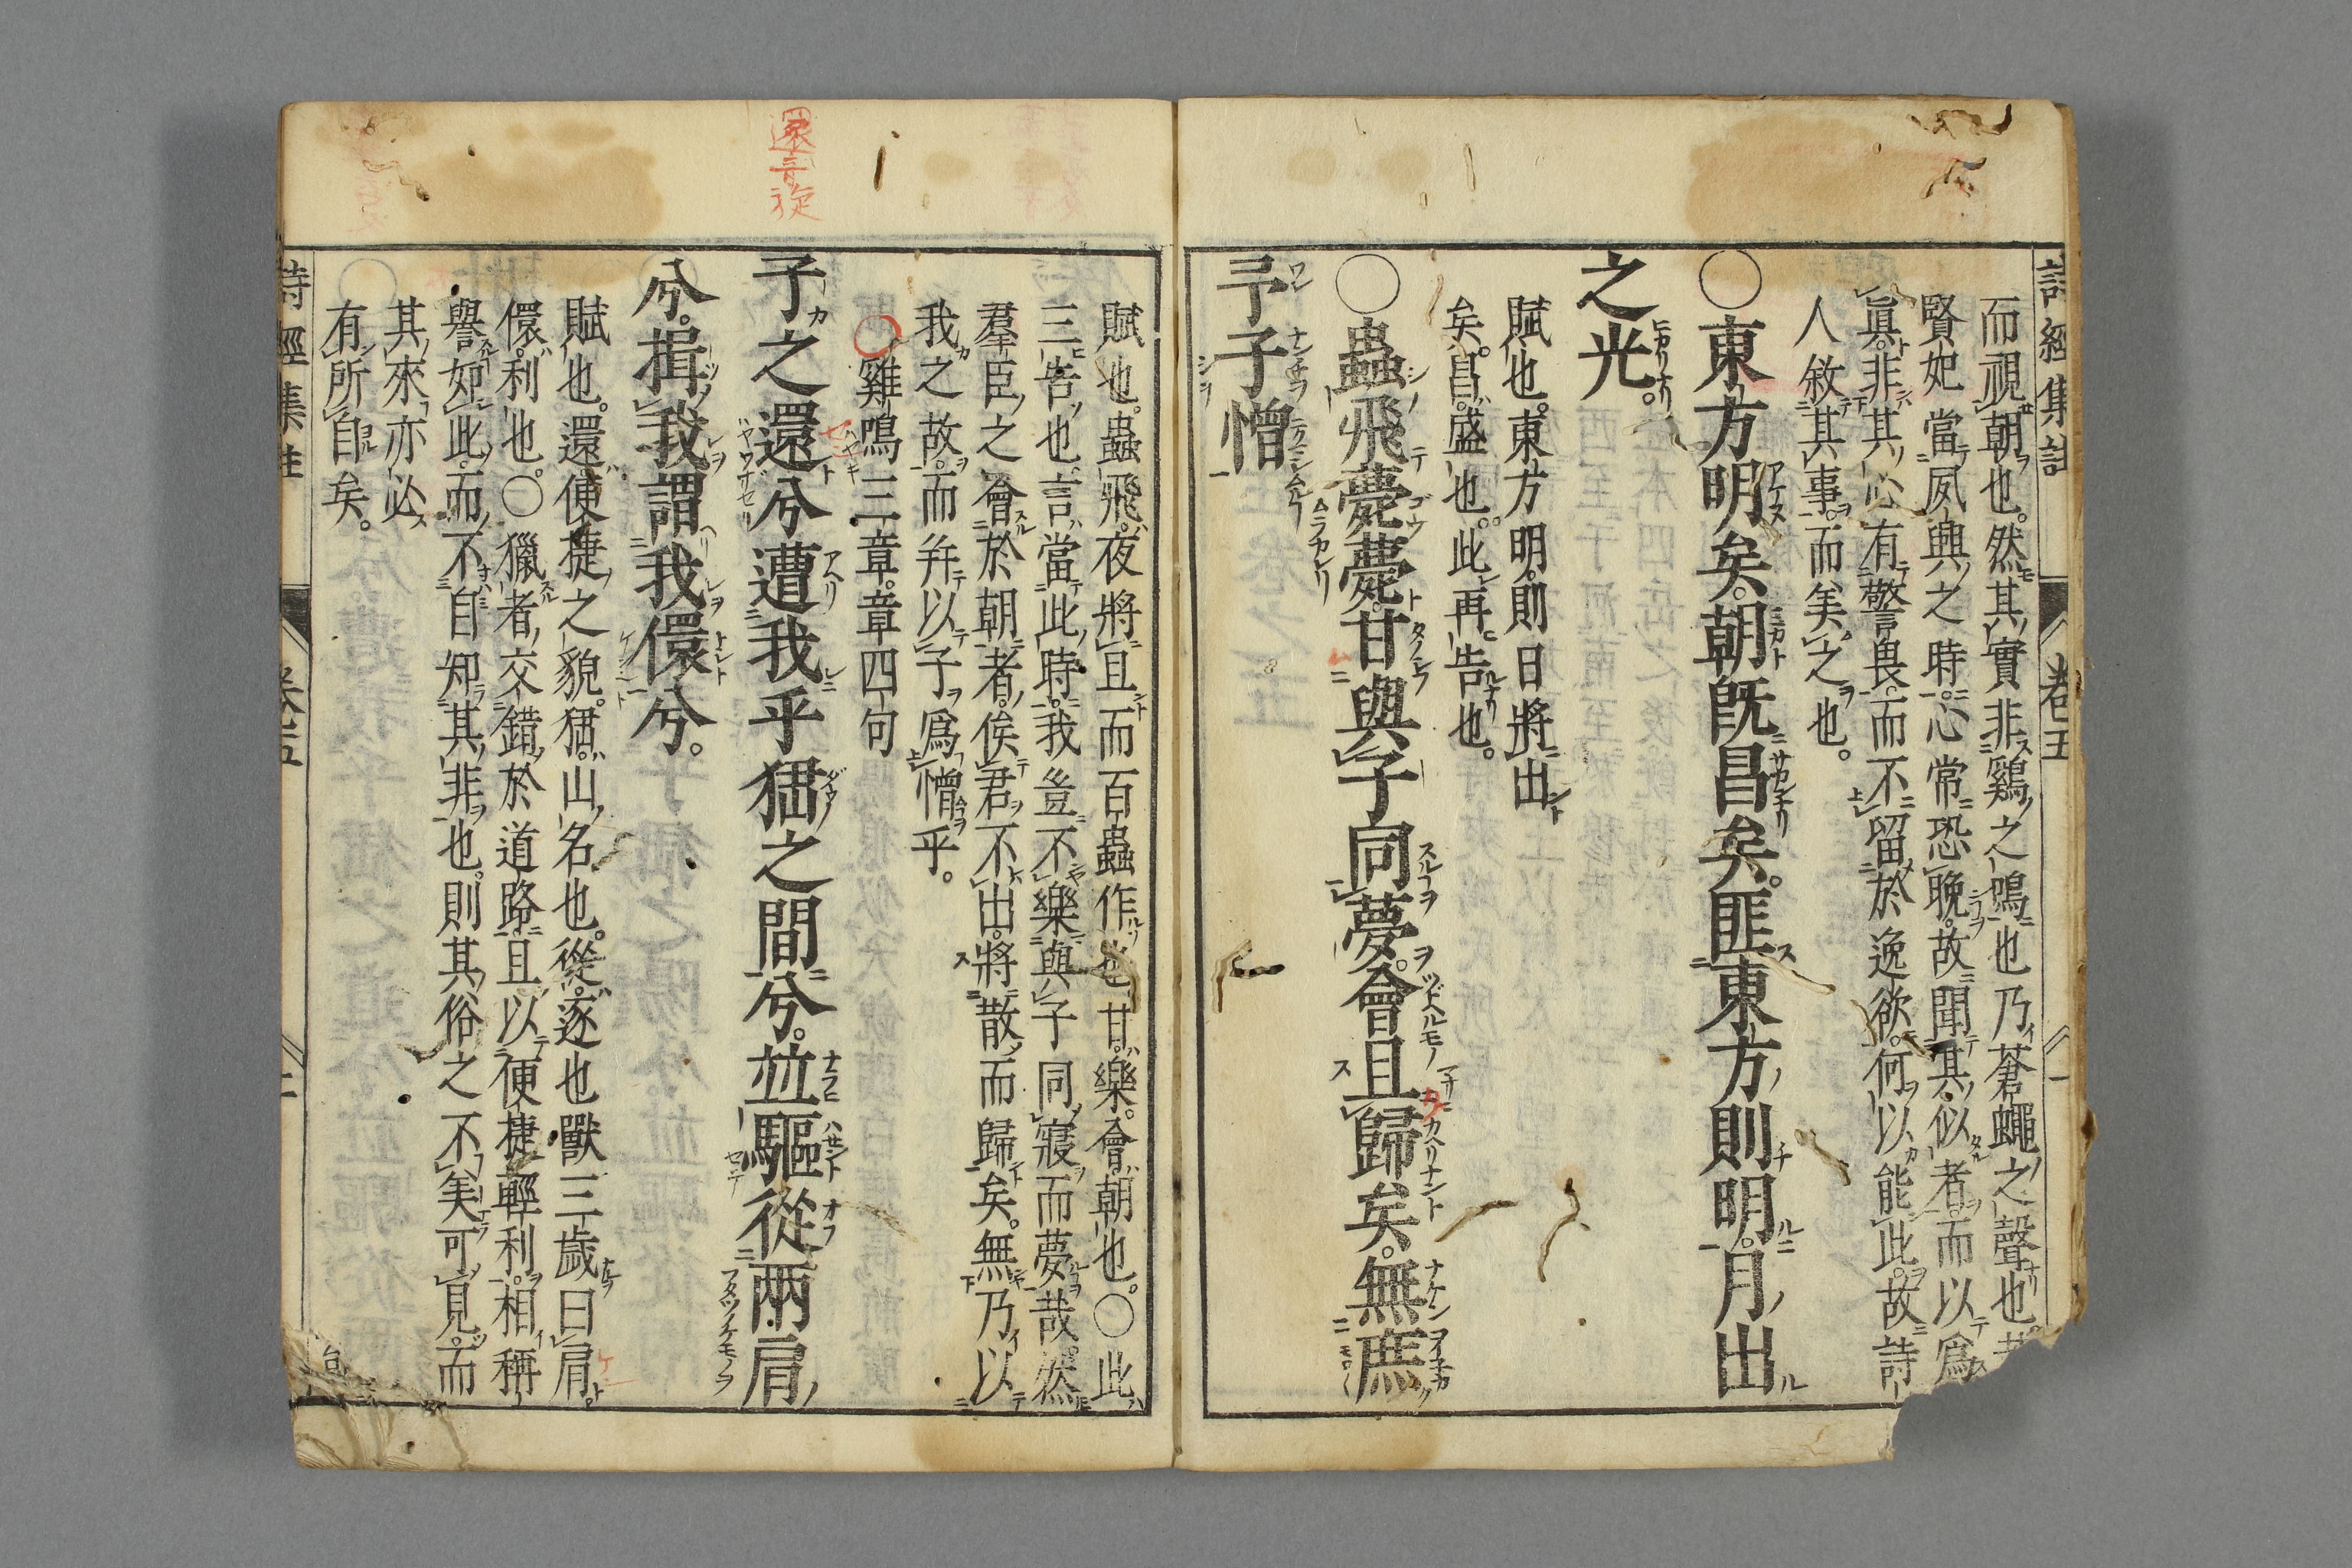 詩經集註 卷五 一
而視朝也。然其實非鷄之鳴也乃蒼蠅之聲也。
賢妃當夙興之時。心常恐晚。故聞其似者。而以爲
眞。非其心有警畏。而不留於逸欲。何以能此。故詩
人敘其事。而美之也。
〇東方明矣。朝既昌矣。匪東方則明。月出
之光。
賦也。東方明。則日將出
矣。昌。盛也。此再告也。
〇蟲飛薨薨。甘與子同夢。會且歸矣。無庶
予子憎
賦也。蟲飛。夜將且而百蟲作也。甘。樂。會。朝也。〇此
三告也。言當此時。我豈不樂與子同寢而夢哉。然
羣臣之會於朝者。俟君不出。將散而歸矣。無乃以
我之故。而幷以子爲憎乎。
〇雞鳴三章。章四句
還音旋
子之還兮遭我乎峱之間兮。並驅從兩肩
兮。揖我謂我儇兮。
賦也。還。便捷之貌。峱。山名也。從。逐也獸三歲曰肩。
儇。利也。〇獵者交錯於道路。且以便捷輕利相稱
譽如此。而不自知其非也。則其俗之不美可見。而
其來亦必
有所自矣。
詩經集註 卷五 二